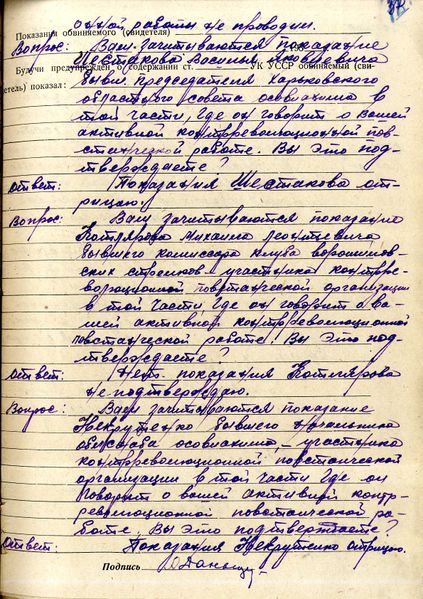 онной работы не проводил.
Показания обвиняемого (свидетеля)
Вопрос: Вам зачитываются показание
Будучи предупрежден о содержании ст. УК УССР обвиняемый (сви-
Шестакова Василия Яковлевича
детель) показал:
бывш председателя Харьковского
областного совета осоавиахима в
той части, где он говорит о Вашей
активной контрреволюционной пов-
станческой работе. Вы это под-
тверждаете?
Ответ: Показания Шестакова от-
рицаю.
Вопрос: Вам зачитываются показание
Котлярова Михаила Леонтьевича
бывшего комиссара клуба ворошилов-
ских стрелков - участника контрре-
волюционной повстанческой организации
в той части где он говорит о ва-
шей активной контрреволюционной
повстанческой работе. Вы это под-
тверждаете?
Ответ: Нет. показания Котлярова
не подтверждаю.
Вопрос: Вам зачитываются показание
Некрутенко бывшего начальника
облштаба осоавиахима - участника
контрреволюционной повстанческой
организации в той части где он
говорит о вашей активной контр-
революционной повстанческой ра-
боте, Вы это подтверждаете?
Ответ: Показания Некрутенко отрицаю.
Подпись